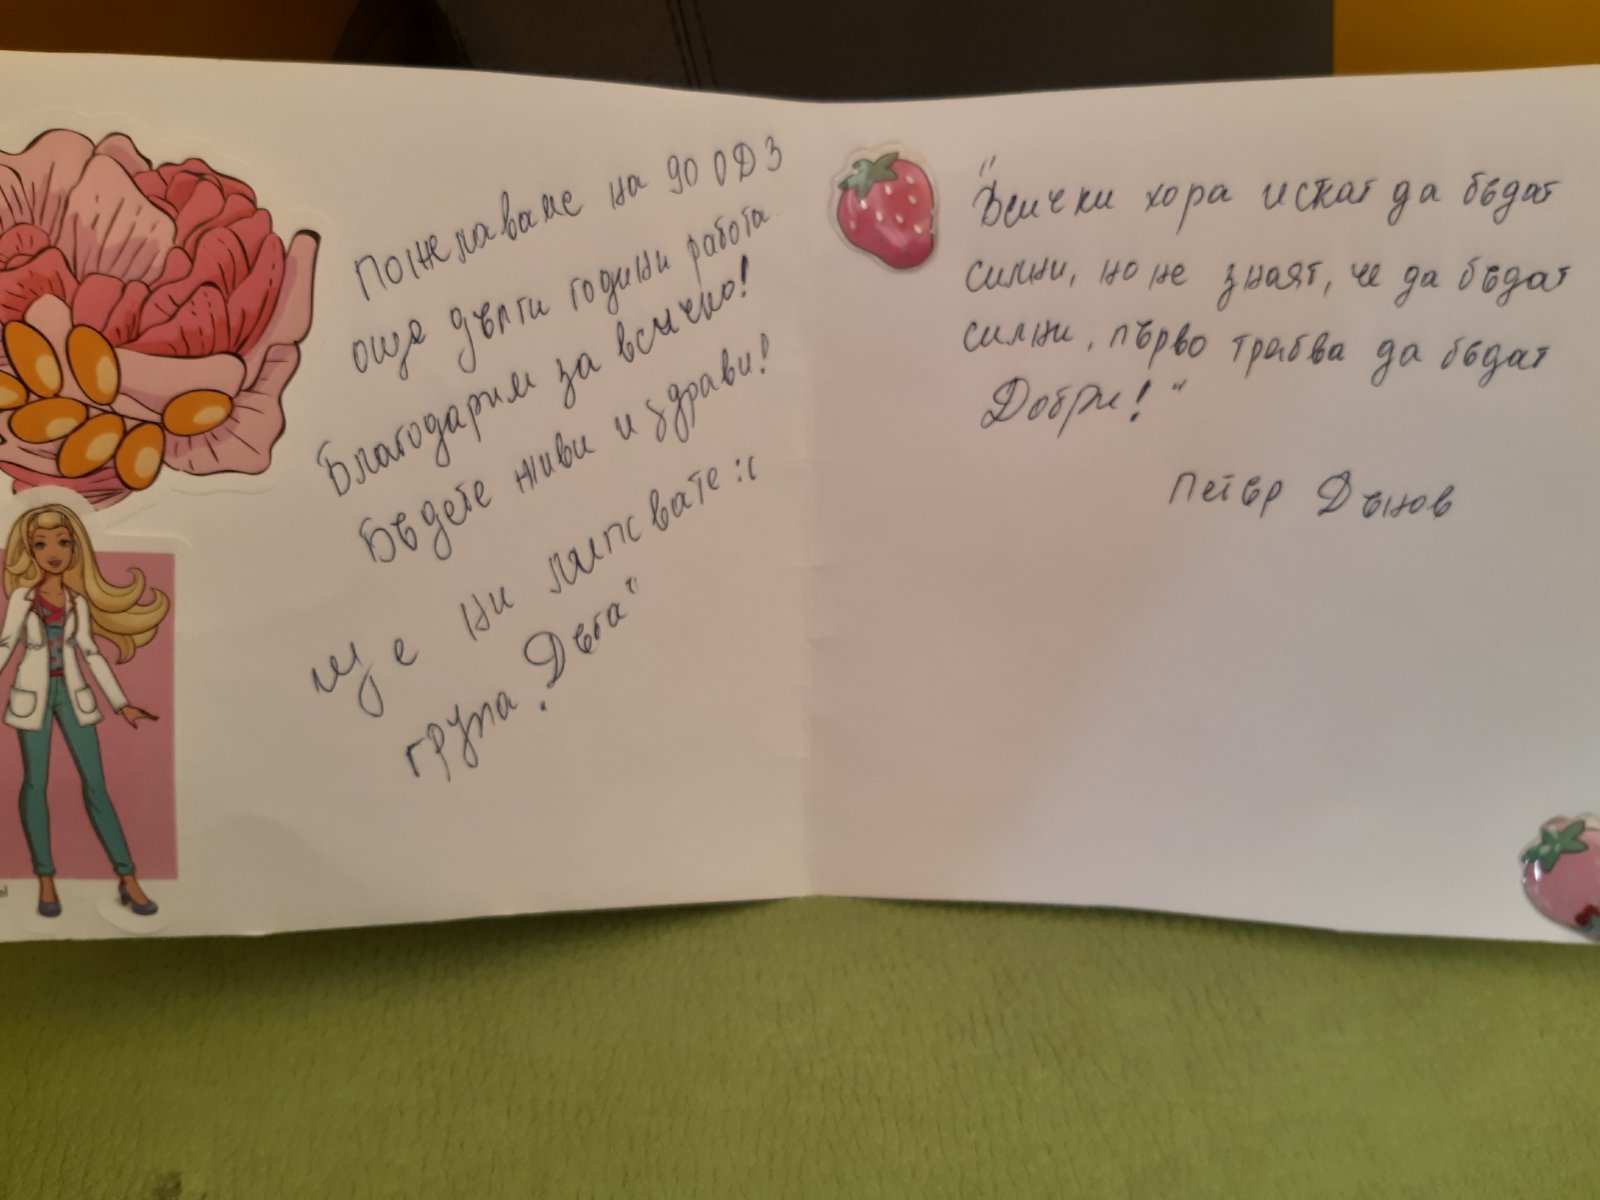 Пожелаваме на 90 ОДЗ
още дълги години работа
Благодарим за всичко!
Бъдете живи и здрави!
Ще ни липсвате :(
група "Дъга"
"Всички хора искат да бъдат
силни, но не знаят, че да бъдат
силни, първо трябва да бъдат
Добри!"
Петър Дънов